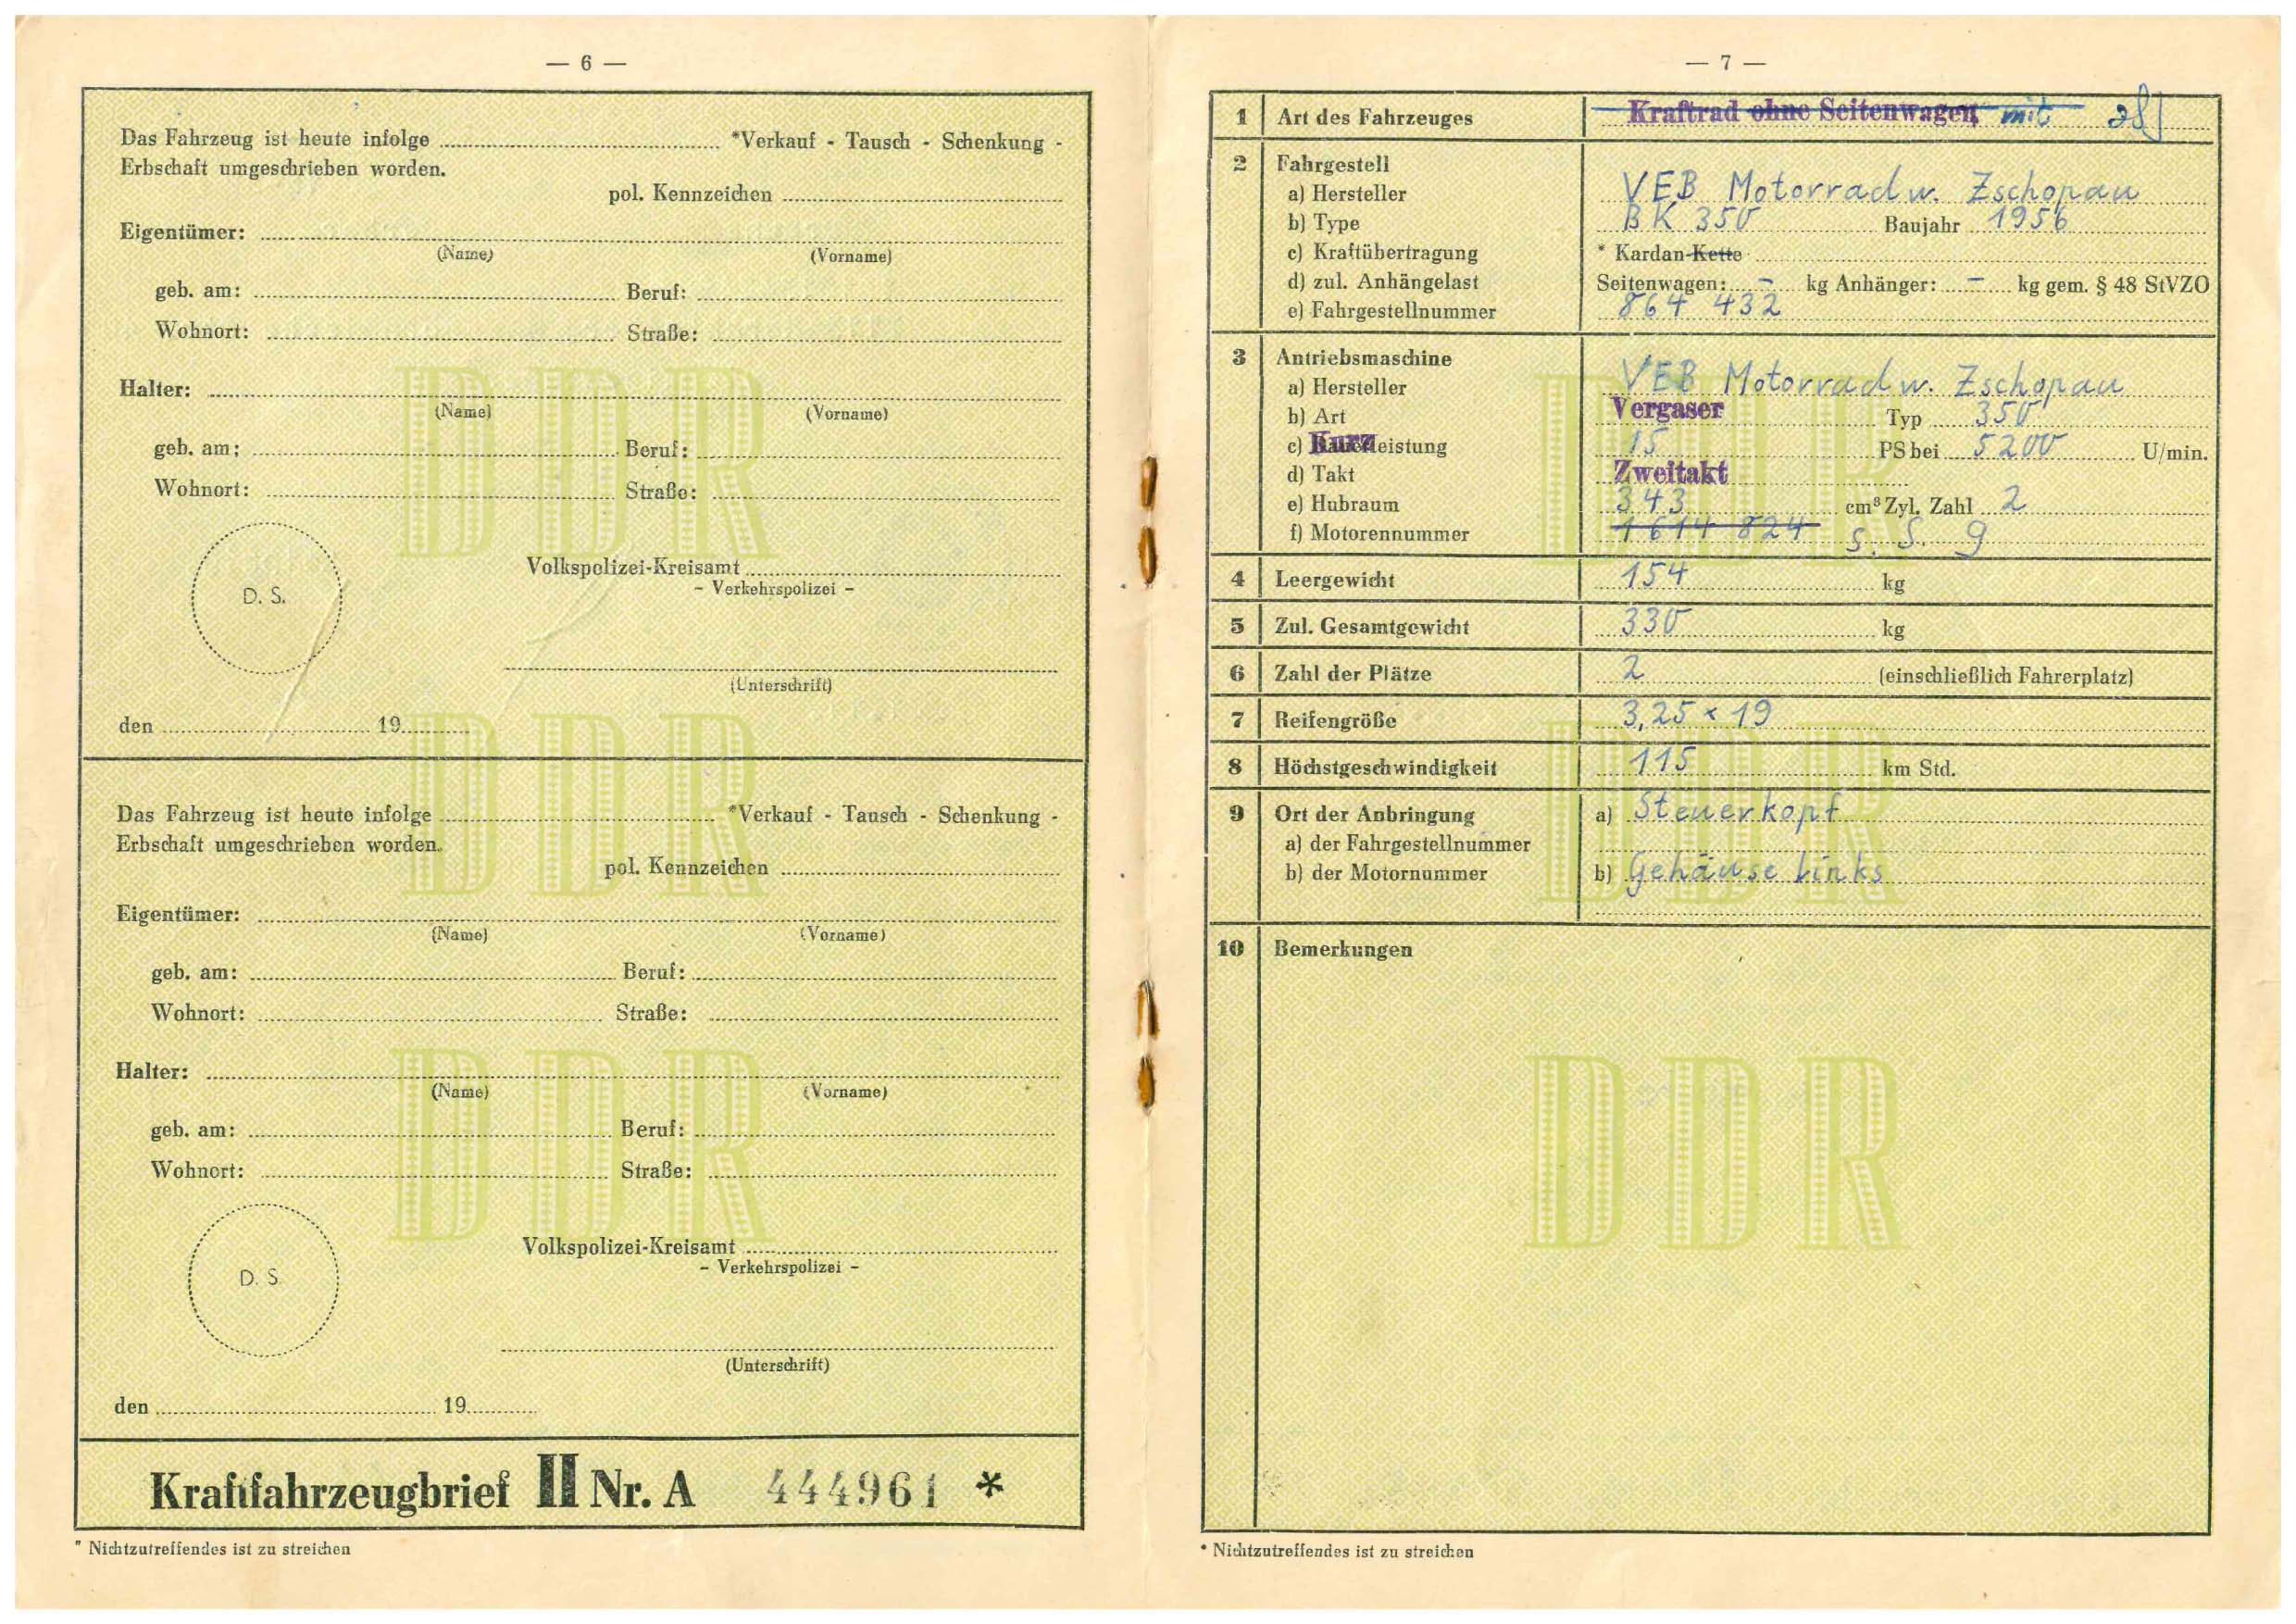 — 6 —
Das Fahrzeug ist heute infolge *Verkauf - Tausch - Schenkung -
Erbschaft umgeschrieben worden.
pol. Kennzeichen
Eigentümer:
(Name) (Vorname)
geb. am: Beruf:
Wohnort: Straße:
Halter:
(Name) (Vorname)
geb. am: Beruf:
Wohnort: Straße:
D. S.
Volkspolizei-Kreisamt
- Verkehrspolizei -
(Unterschrift)
den 19
Das Fahrzeug ist heute infolge *Verkauf - Tausch - Schenkung -
Erbschaft umgeschrieben worden.
pol. Kennzeichen
Eigentümer:
(Name) (Vorname)
geb. am: Beruf:
Wohnort: Straße:
Halter:
(Name) (Vorname)
geb. am: Beruf:
Wohnort: Straße:
D. S.
Volkspolizei-Kreisamt
- Verkehrspolizei -
(Unterschrift)
den 19
Kraftfahrzeugbrief II Nr. A 444961 *
* Nichtzutreffendes ist zu streichen
— 7 —
1 Art des Fahrzeuges Kraftrad ohne Seitenwagen mit
2 Fahrgestell
a) Hersteller VEB Motorradw. Zschopau
b) Type BK 350 Baujahr 1956
c) Kraftübertragung * Kardan-Kette
d) zul. Anhängelast Seitenwagen: - kg Anhänger: - kg gem. § 48 StVZO
e) Fahrgestellnummer 864 432
3 Antriebsmaschine
a) Hersteller VEB Motorradw. Zschopau
b) Art Vergaser Typ 350
c) Kurzleistung 15 PS bei 5200 U/min.
d) Takt Zweitakt
e) Hubraum 343 cm³ Zyl. Zahl 2
f) Motorennummer 1614 824 s. S. 9
4 Leergewicht 154 kg
5 Zul. Gesamtgewicht 330 kg
6 Zahl der Plätze 2 (einschließlich Fahrerplatz)
7 Reifengröße 3,25 x 19
8 Höchstgeschwindigkeit 115 km Std.
9 Ort der Anbringung a) Steuerkopf
a) der Fahrgestellnummer
b) der Motornummer b) Gehäuse links
10 Bemerkungen
DDR
DDR
DDR
DDR
DDR
DDR
* Nichtzutreffendes ist zu streichen